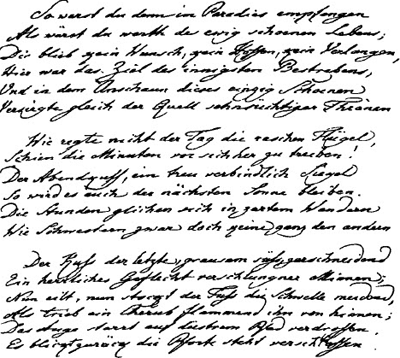 So warst du denn im Paradies empfangen
Als wärst du werth des ewig schoenen Lebens;
Dir blieb kein Wunsch, kein Hoffen, kein Verlangen,
Hier war das Ziel des innigsten Bestrebens,
Und in dem Anschaun dieses einzig Schoenen
Versiegte gleich der Quell sehnsüchtiger Thränen
Wie regte nicht der Tag die raschen Flügel,
Schien die Minuten vor sich her zu treiben!
Der Abendkuss, ein treu verbindlich Siegel
So wird es auch der nächsten Sonne bleiben.
Die Stunden glichen sich in zartem Wandern
Wie Schwestern zwar doch keine ganz den andern
Der Kuss der letzte, grausam süss, zerschneidend
Ein herrliches Geflecht verschlungner Minnen;
Nun eilt, nun stockt der Fuss die Schwelle meidend,
Als trieb ein Cherub flammend ihn von hinnen;
Das Auge starrt auf düstrem Pfad verdrossen,
Es blickt zurück die Pforte steht verschlossen.